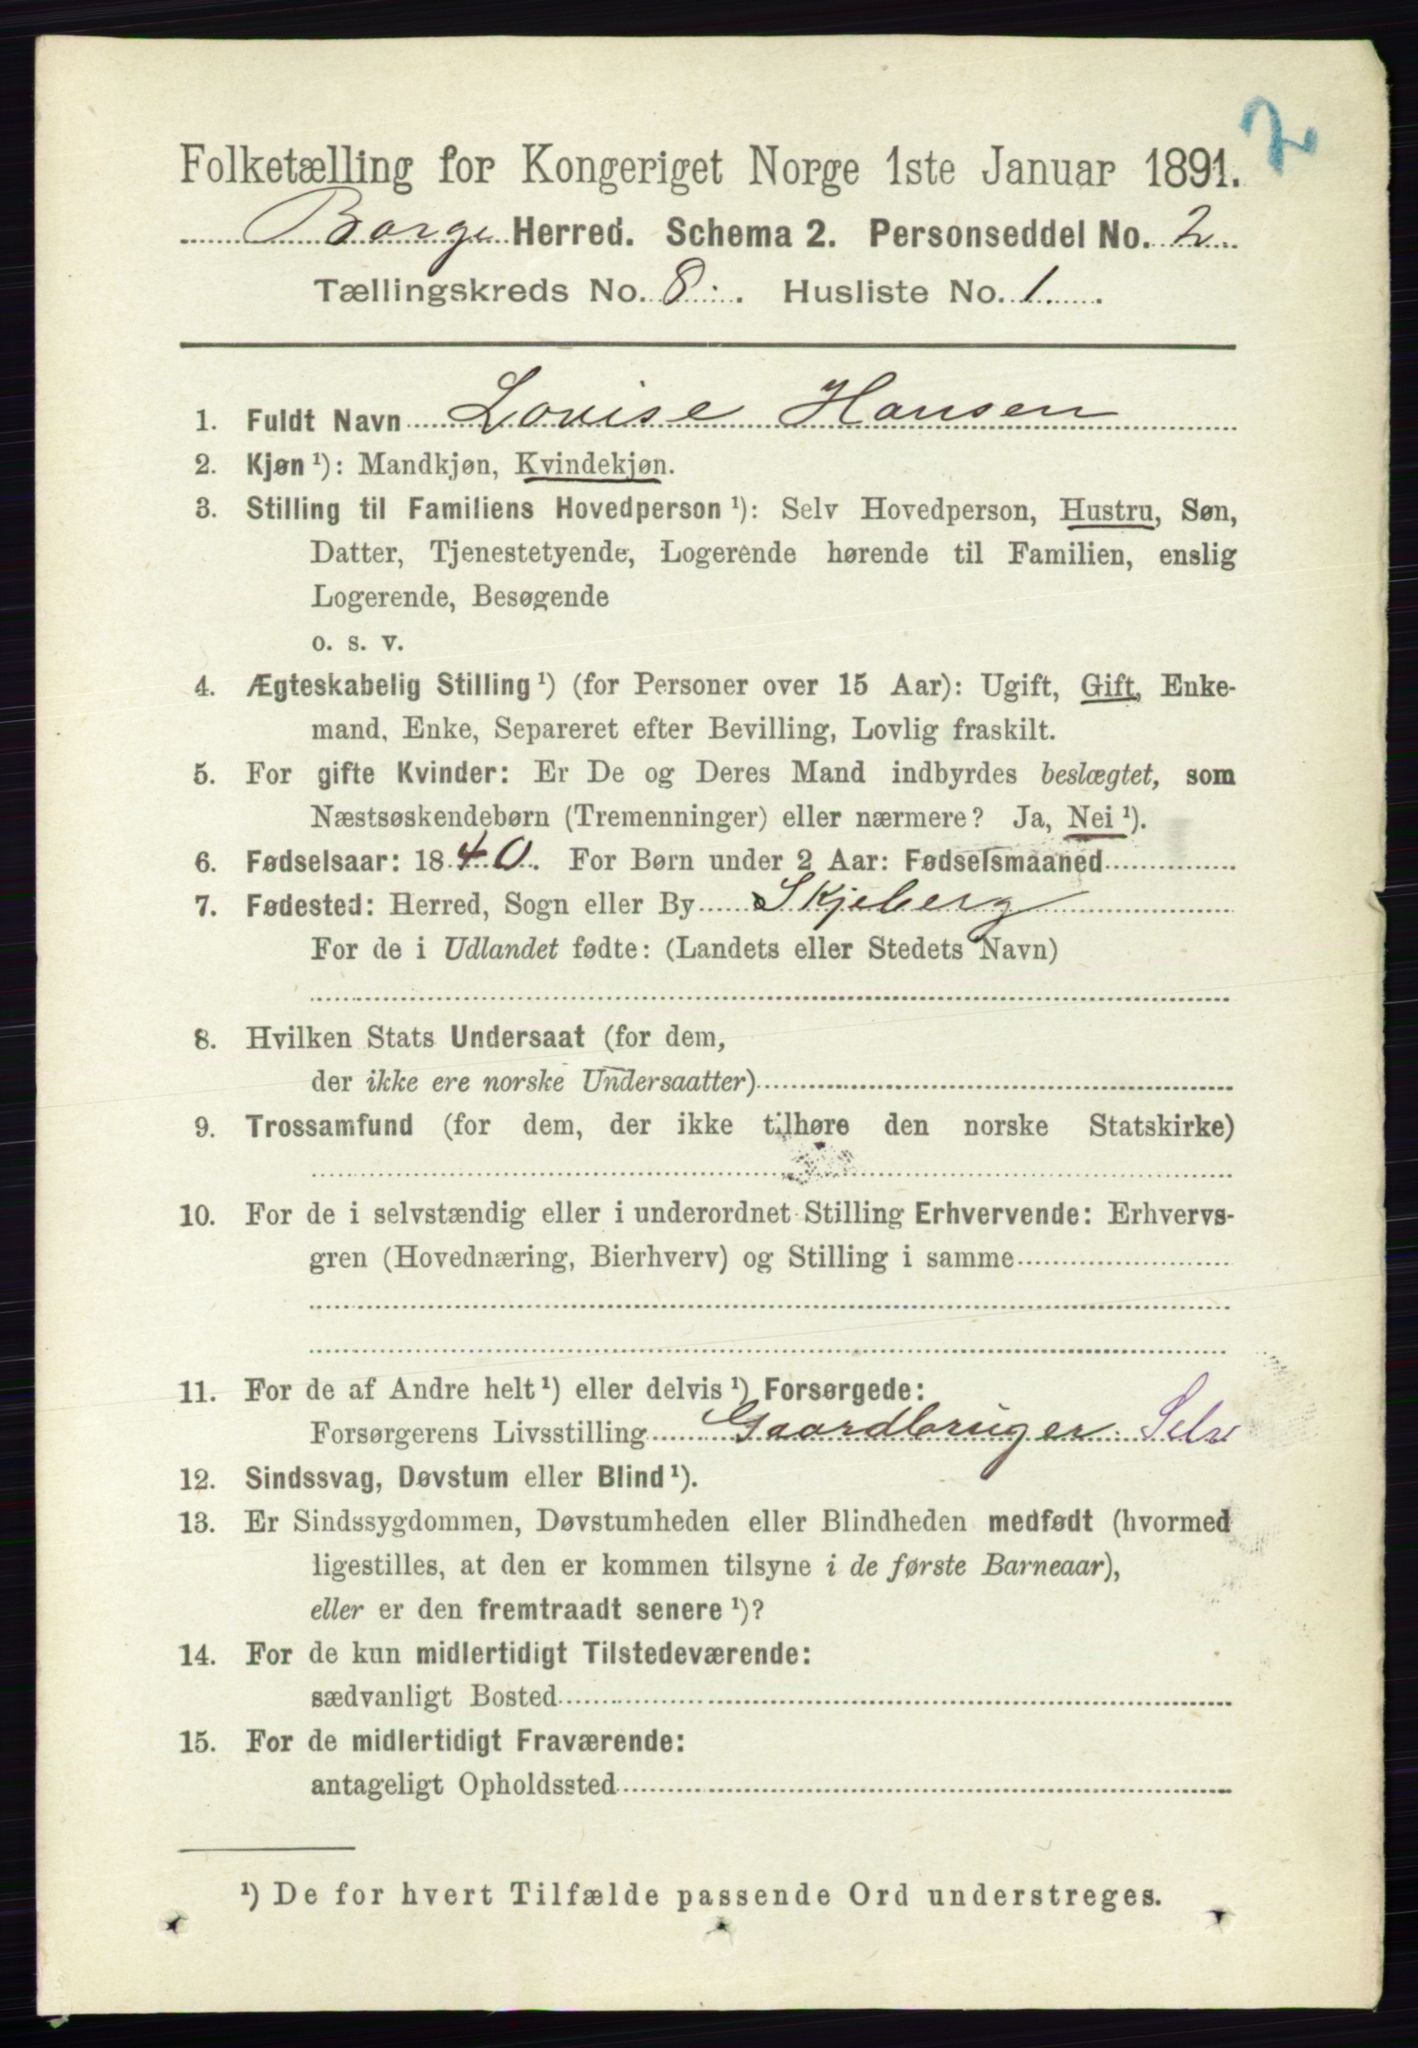 2
Folketælling for Kongeriget Norge 1ste Januar 1891.
Borge Herred. Schema 2. Personseddel No. 2
Tællingskreds No. 8. Husliste No. 1.
1. Fuldt Navn Lovise Hansen
2. Kjøn ¹): Mandkjøn, Kvindekjøn.
3. Stilling til Familiens Hovedperson ¹): Selv Hovedperson, Hustru, Søn,
Datter, Tjenestetyende, Logerende hørende til Familien, enslig
Logerende, Besøgende
o. s. v.
4. Ægteskabelig Stilling ¹) (for Personer over 15 Aar): Ugift, Gift, Enke-
mand, Enke, Separeret efter Bevilling, Lovlig fraskilt.
5. For gifte Kvinder: Er De og Deres Mand indbyrdes beslægtet, som
Næstsøskendebørn (Tremenninger) eller nærmere? Ja, Nei ¹).
6. Fødselsaar: 1840. For Børn under 2 Aar: Fødselsmaaned
7. Fødested: Herred, Sogn eller By Skjeberg
For de i Udlandet fødte: (Landets eller Stedets Navn)
8. Hvilken Stats Undersaat (for dem,
der ikke ere norske Undersaatter)
9. Trossamfund (for dem, der ikke tilhøre den norske Statskirke)
10. For de i selvstændig eller i underordnet Stilling Erhvervende: Erhvervs-
gren (Hovednæring, Bierhverv) og Stilling i samme
11. For de af Andre helt ¹) eller delvis ¹) Forsørgede:
Forsørgerens Livsstilling Gaardbruger. Selv
12. Sindssvag, Døvstum eller Blind ¹).
13. Er Sindssygdommen, Døvstumheden eller Blindheden medfødt (hvormed
ligestilles, at den er kommen tilsyne i de første Barneaar),
eller er den fremtraadt senere ¹)?
14. For de kun midlertidigt Tilstedeværende:
sædvanligt Bosted
15. For de midlertidigt Fraværende:
antageligt Opholdssted
¹) De for hvert Tilfælde passende Ord understreges.